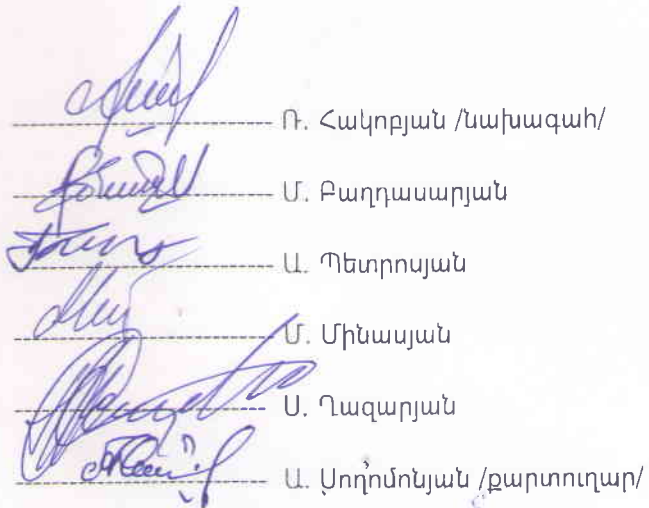 Ռ. Հակոբյան /նախագահ/
Մ. Բաղդասարյան
Ա. Պետրոսյան
Մ. Մինասյան
Ս. Ղազարյան
Ա. Սողոմոնյան /քարտուղար/